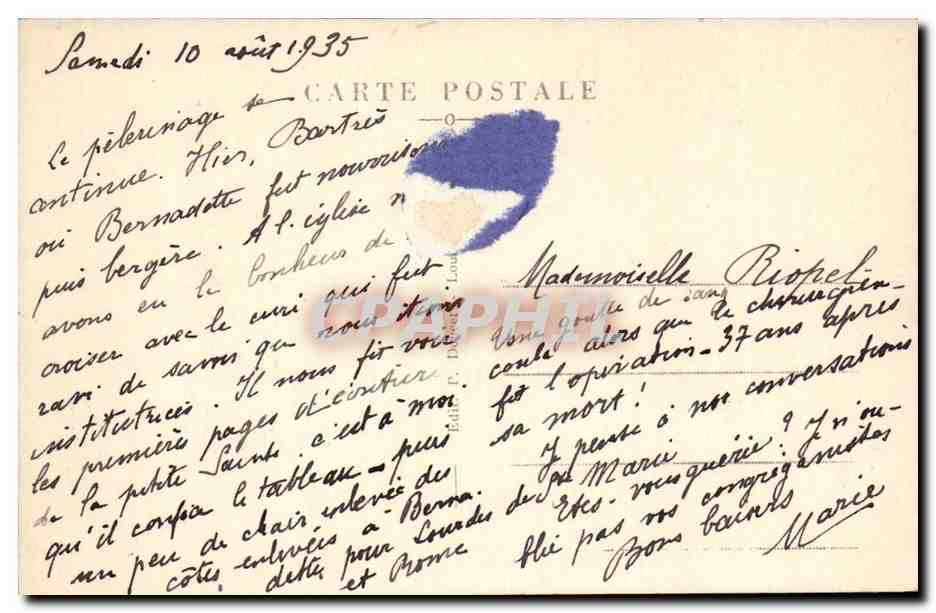 Samedi 10 août 1935
CARTE POSTALE
Le pèlerinage se
continue. Hier, Bartrès
où Bernadette fut nourrisson
puis bergère. A l'église n
avons eu le bonheur de
croiser avec le curé qui fut
ravi de savoir que nous étions
institutrices. Il nous fit voir
les premières pages d'écriture
de la petite Sainte. c'est à moi
qu'il confia le tableau - puis
un peu de chair enlevée des
côtes enlevées à Berna-
dette pour Lourdes
et Rome
Mademoiselle Riopel
Une goutte de sang
coulé alors que le chirurgien
fit l'opération - 37 ans après
sa mort!
Je pense à nos conversations
de Marie
Etes-vous guérie? J n'ou-
blie pas vos congréganistes
Bons baisers
Marie
Edit. P. Doucet, Lou
CPAPHIL